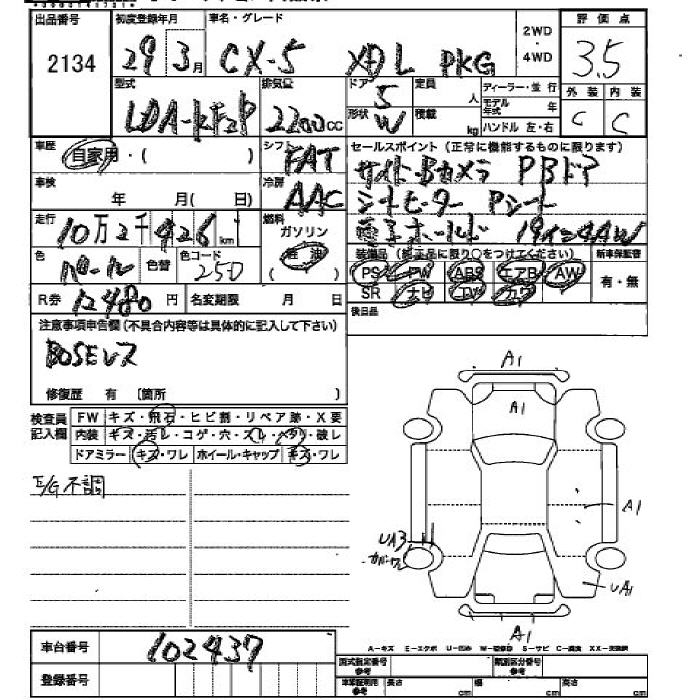 出品番号 初度登録年月 車名・グレード 2WD・4WD 評価点
2134 29 3月 CX-5 XDL PKG 3.5
型式 排気量 ドア 定員 ディーラー・並行 外装 内装
LDA-KF2P 2200cc 5 人 モデル年式 年 C C
形状 W 積載 kg ハンドル 左・右
車歴 自家用・( ) シフト FAT セールスポイント(正常に機能するものに限ります)
車検 年 月( 日) 冷房 AAC サイド・Bカメラ PBドア
シートヒーター Pシート
走行 10万2千426km 燃料 ガソリン 軽油 電子ホールド 19インチAW
色 パール 色替 色コード 25D 装備品(純正品に限り○をつけてください) 新車保証書
PS PW ABS エアB AW 有・無
R券 12480円 名変期限 月 日 SR ナビ TV カワ
注意事項申告欄(不具合内容等は具体的に記入して下さい) 後日品
BOSEレス
修復歴 有 [箇所 ]
検査員記入欄 FW キズ・飛石・ヒビ割・リペア跡・X要
内装 キズ・汚レ・コゲ・穴・スレ・ヘタリ・破レ
ドアミラー キズ・ワレ ホイール・キャップ キズ・ワレ
E/G不調
A1
A1
A1
UA3
UA1
A1
車台番号 102437
A-キズ E-エクボ U-凹み W-補修跡 S-サビ C-腐食 XX-交換済
登録番号 型式指定番号 参考 類別区分番号 参考
車庫証明用 参考 長さ cm 幅 cm 高さ cm